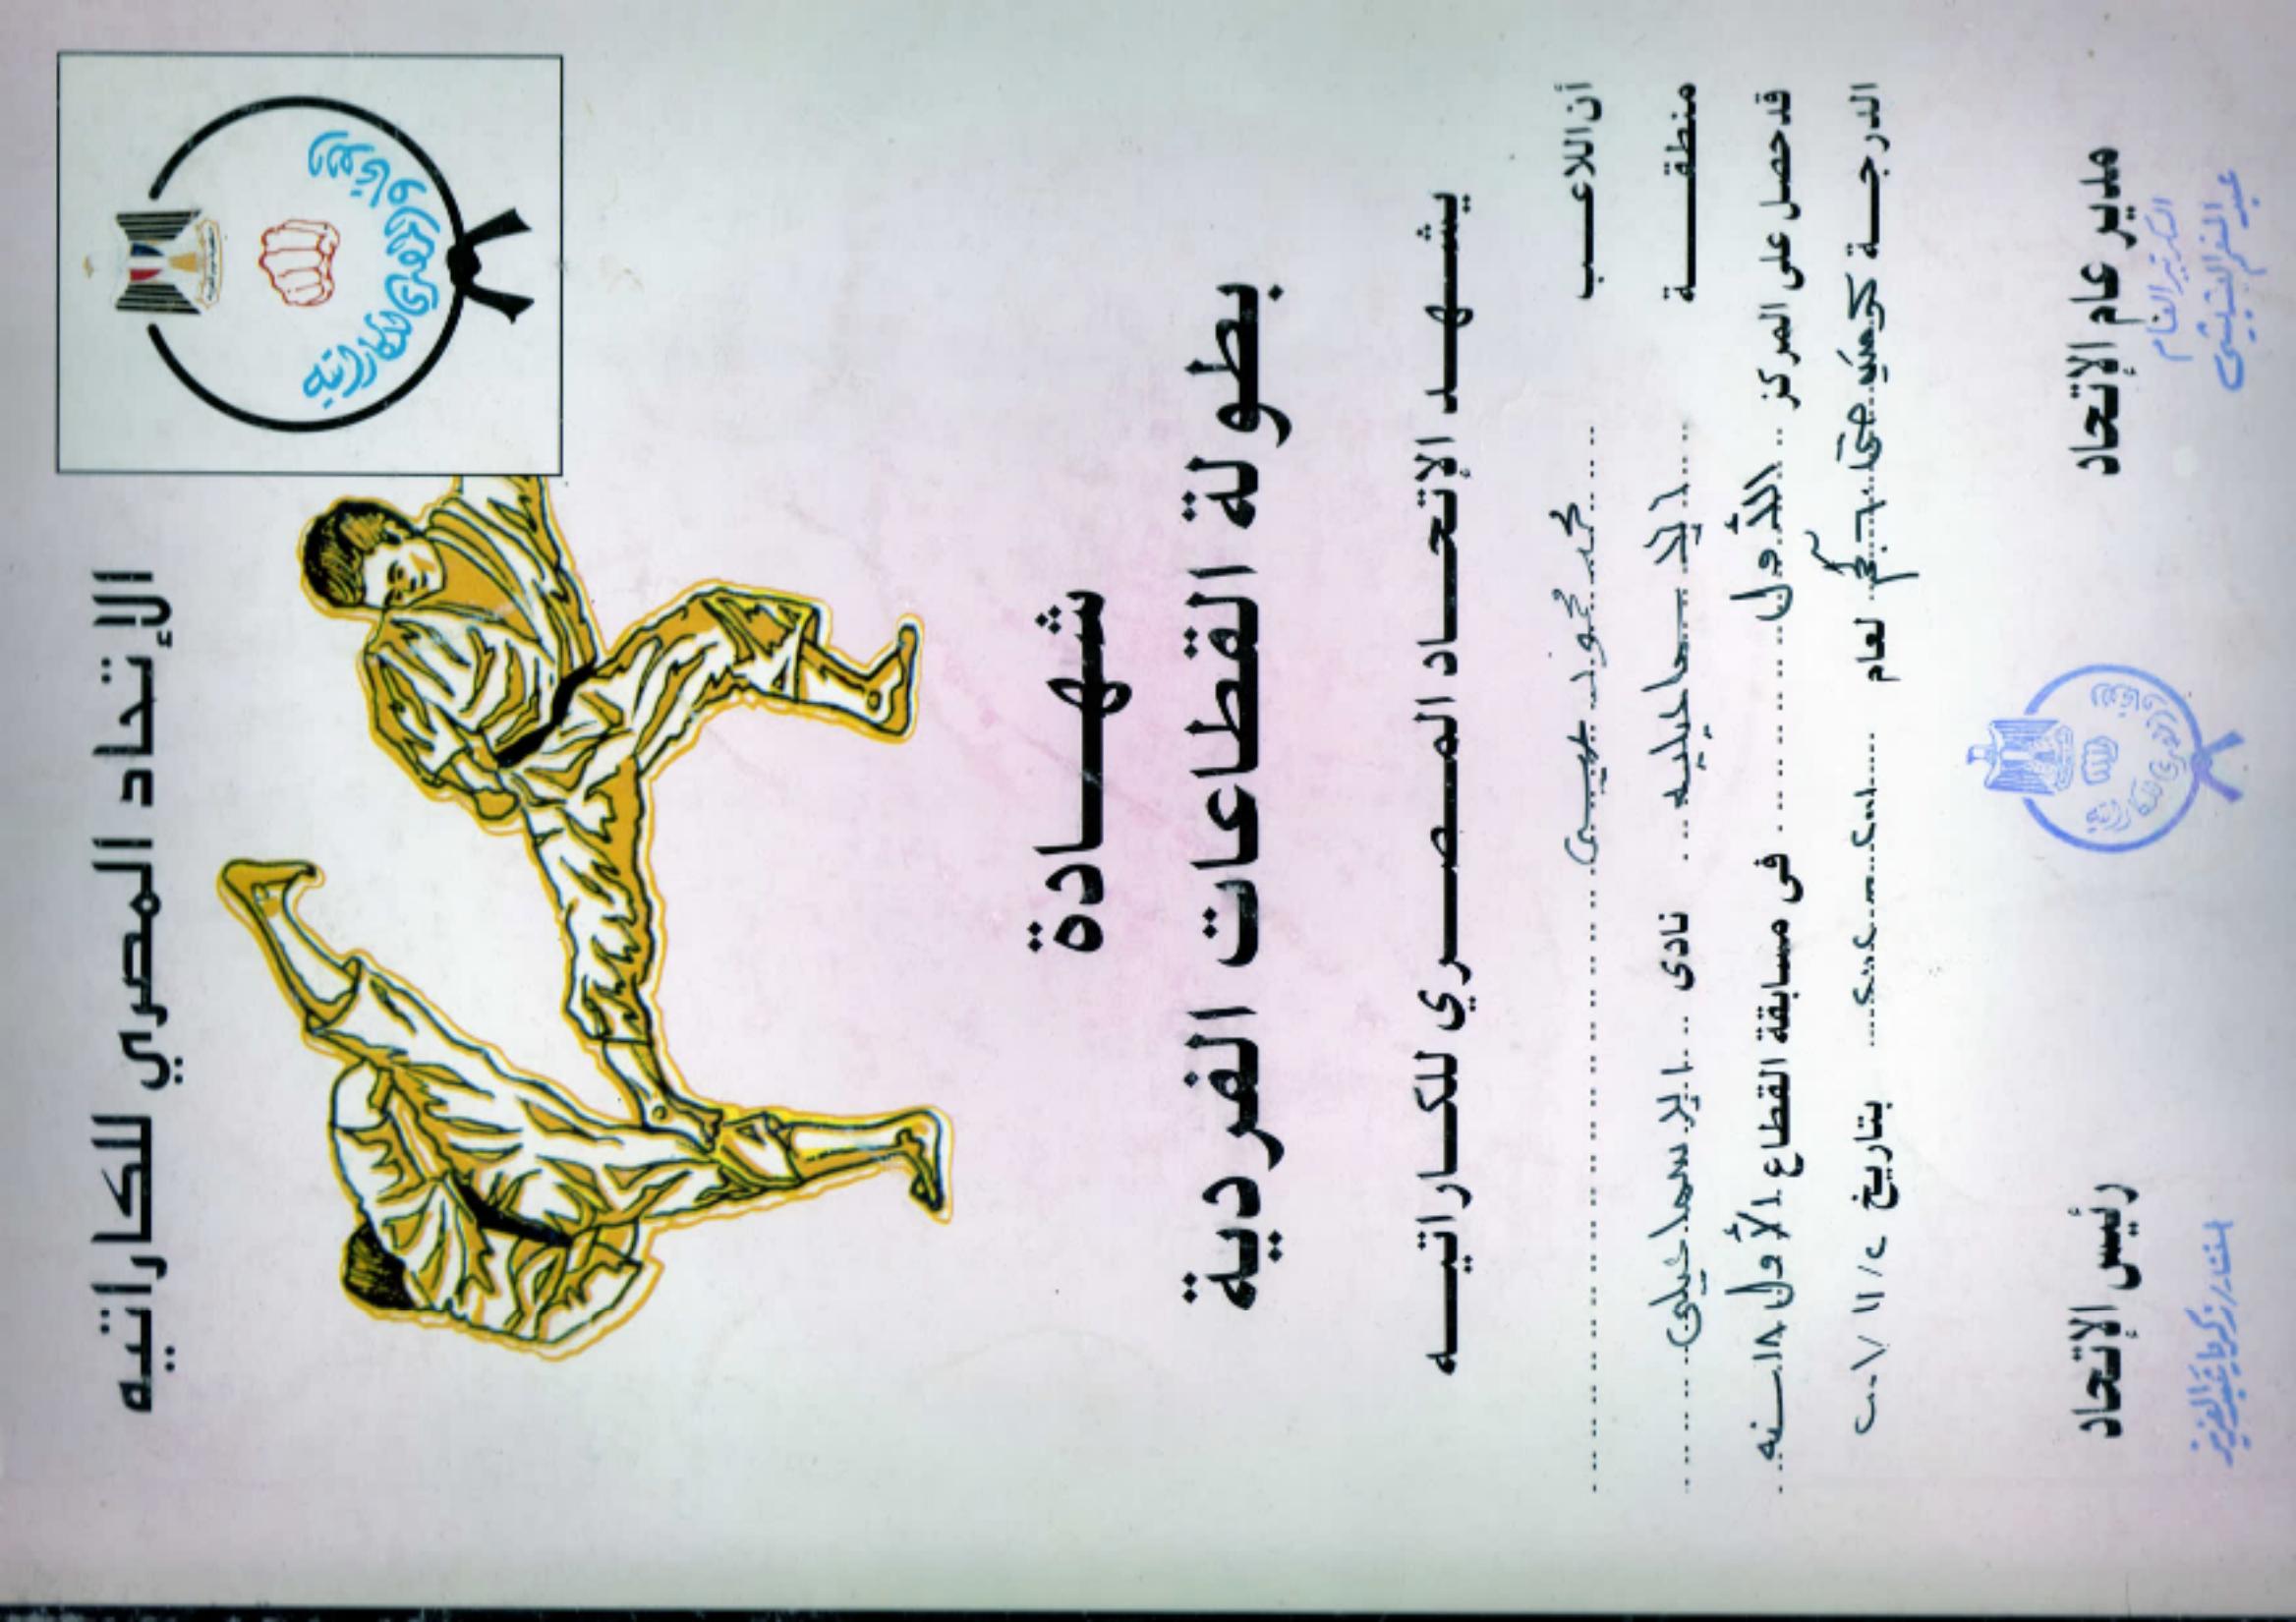 الإتحاد المصري للكاراتيه
الاتحاد المصرى للكاراتيه
شهادة
بطولة القطاعات الفردية
يشهد الإتحاد المصري للكاراتيه
أن اللاعب محمد محمود عيسى
منطقة الإسماعيلية نادى الإسماعيلى
قد حصل على المركز الأول فى مسابقة القطاع الأول ١٨ سنه
الدرجة كوميتيه حتى ٦٠ كجم لعام ٢٠٠١ - ٢٠٠٢ بتاريخ ٢/ ١١ / ٢٠٠١
مدير عام الإتحاد
رئيس الإتحاد
السكرتير العام
عبد المنعم
زكريا عبد العزيز
الاتحاد المصرى للكاراتيه